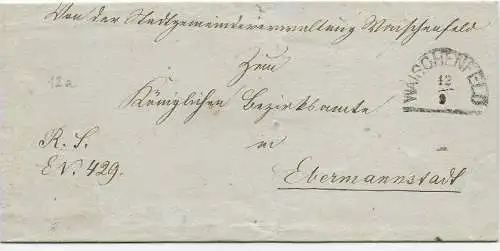 Von der Stadtgemeindeverwaltung Waischenfeld
Zum
WAISCHENFELD
12
9
12a
Königlichen Bezirksamte
R. S.
in
E. N. 429.
Ebermannstadt